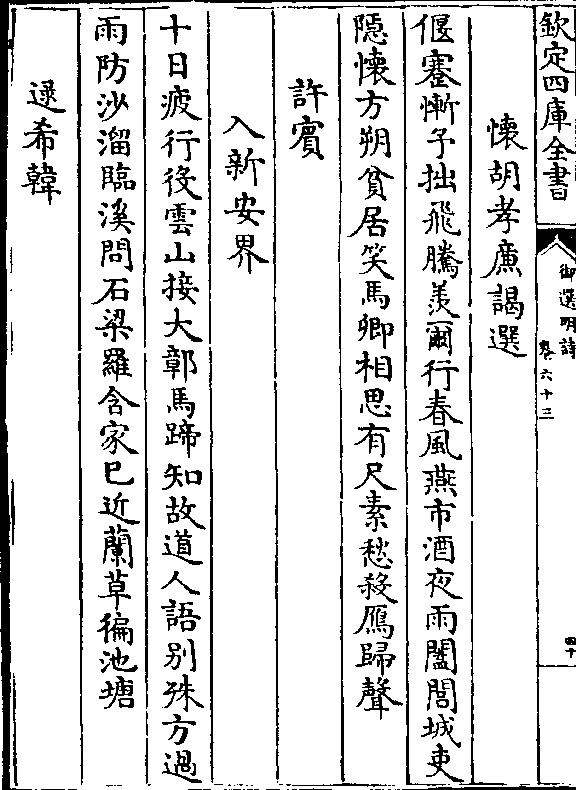 欽定四庫全書
御選明詩
卷六十三
四十
懷胡孝廉謁選
偃蹇慚予拙飛騰羡爾行春風燕市酒夜雨闔閭城吏
隱懷方朔貧居笑馬卿相思有尺素愁殺鴈歸聲
許賓
入新安界
十日疲行役雲山接大鄣馬蹄知故道人語别殊方過
雨防沙溜臨溪問石梁羅含家已近蘭草徧池塘
逯希韓